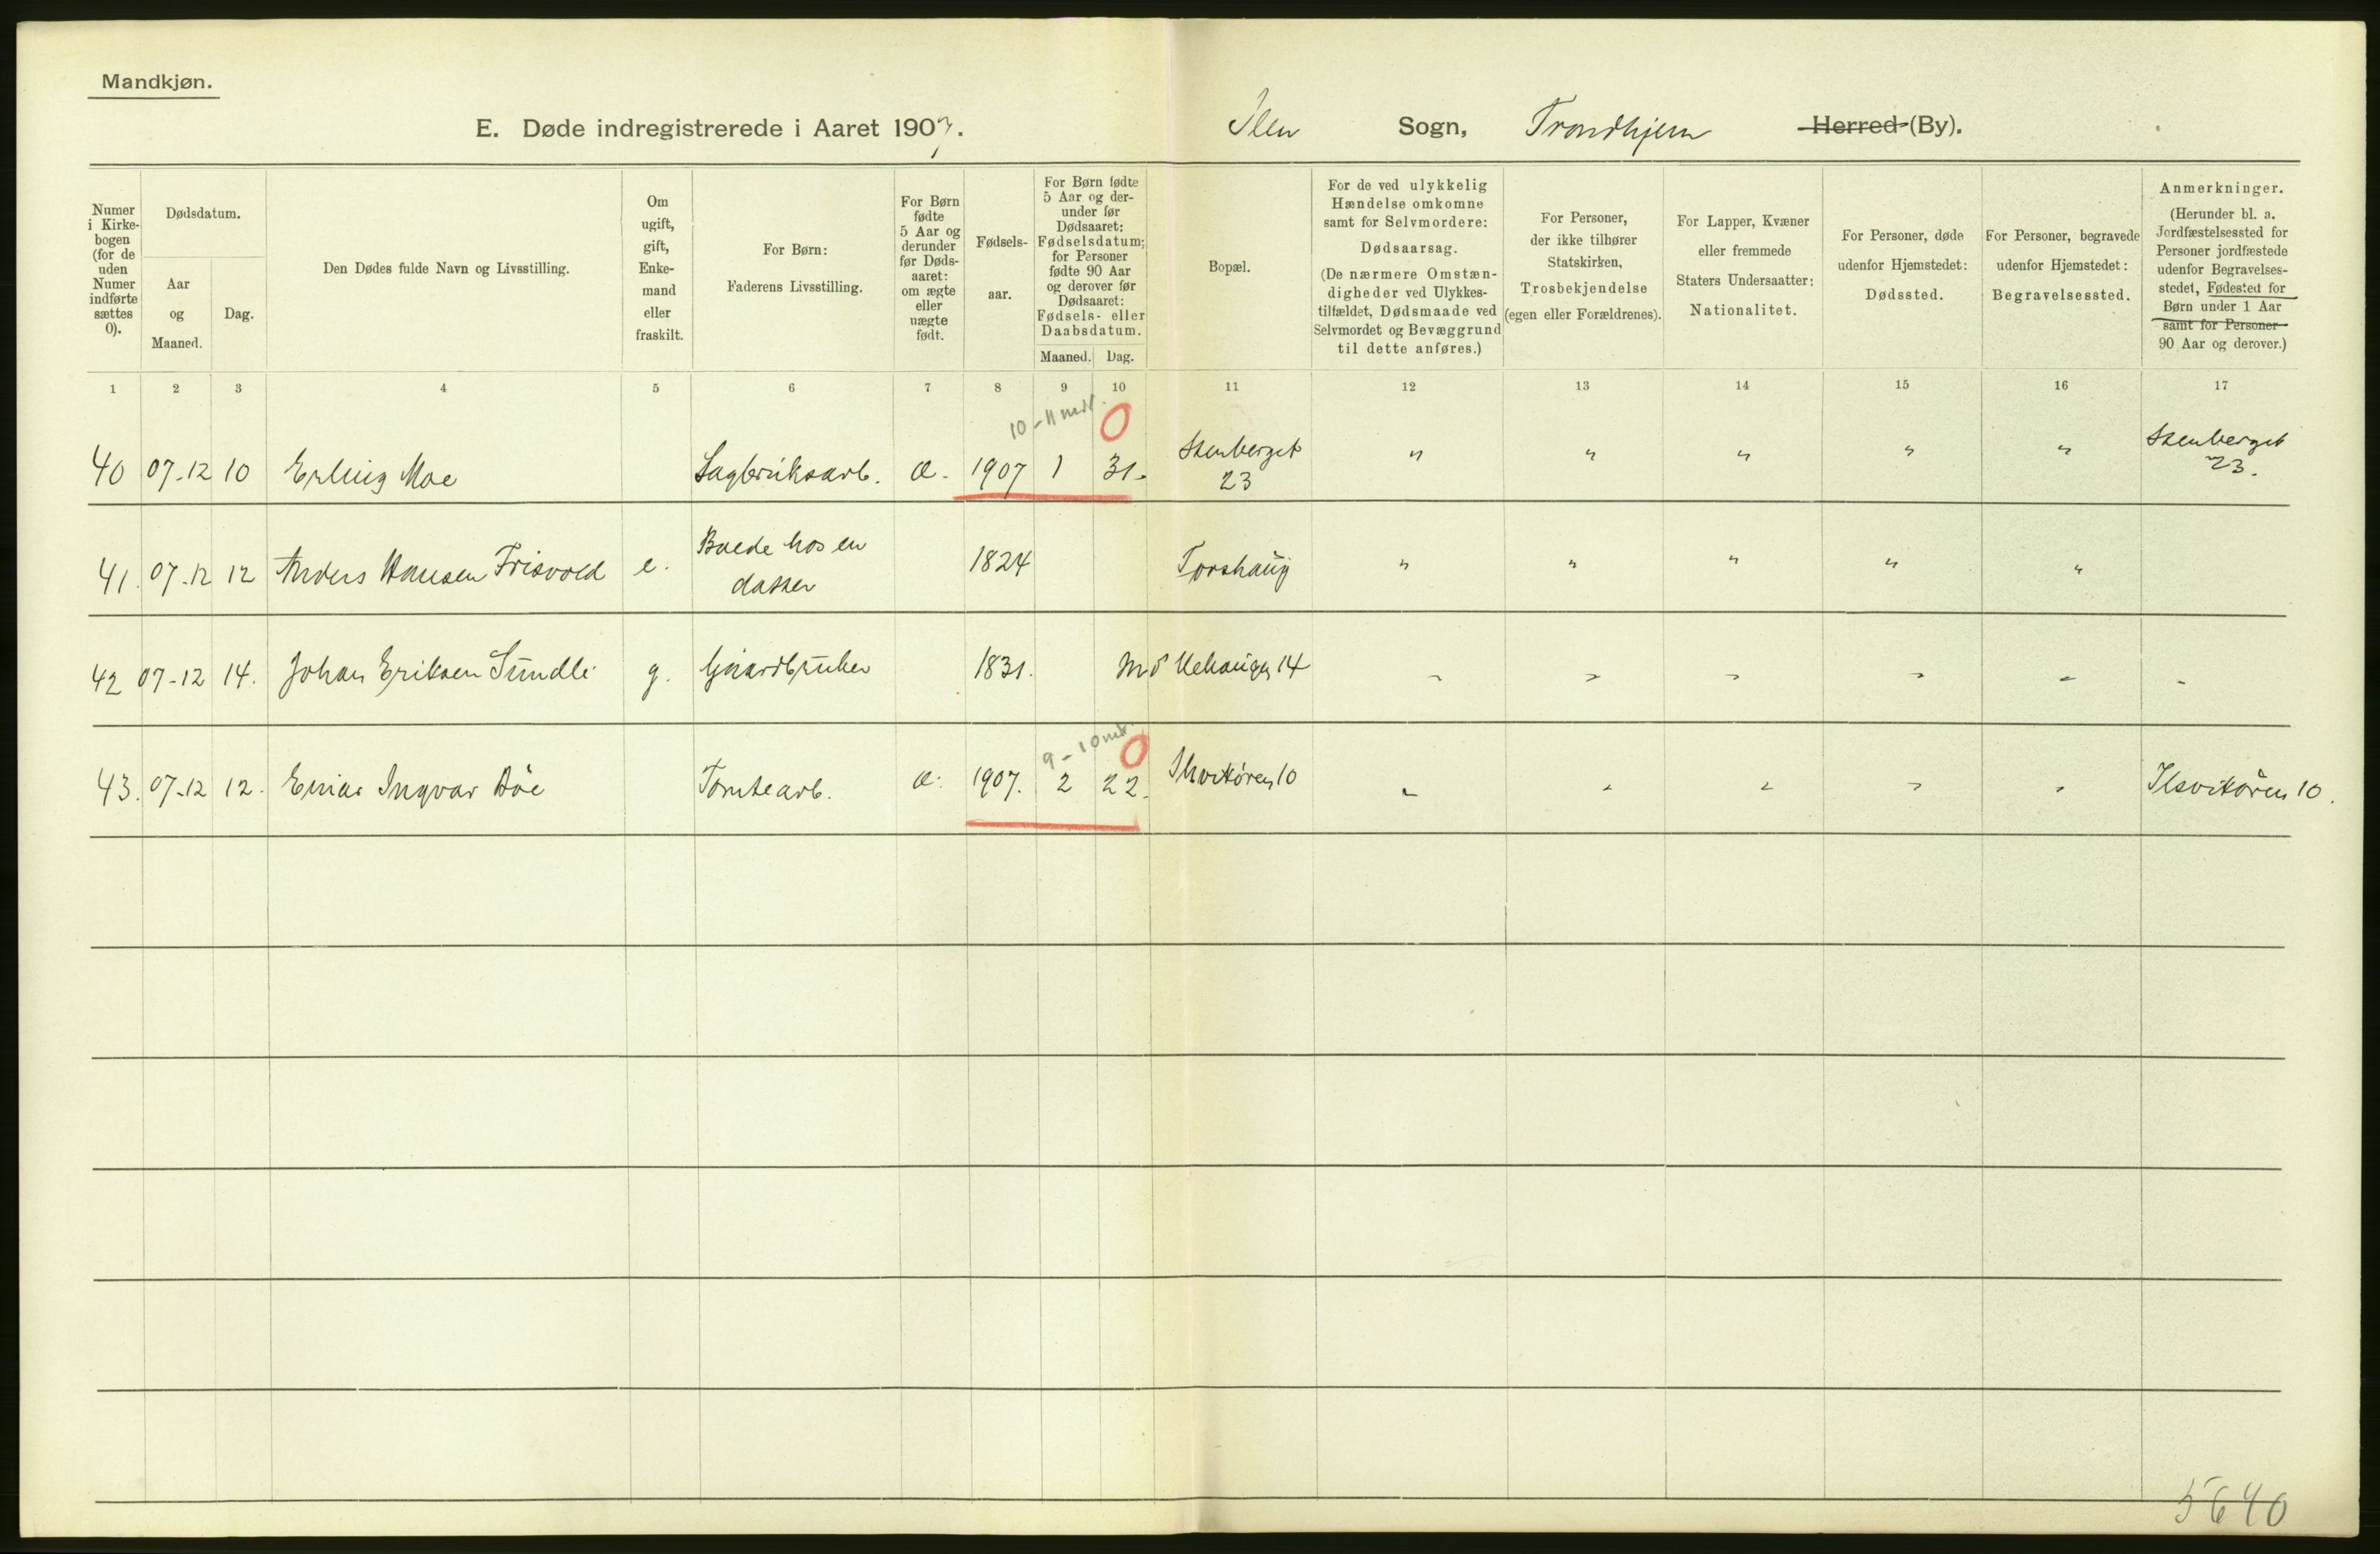 Mandkjøn.
E. Døde indregistrerede i Aaret 1907. Ilen Sogn, Trondhjem Herred (By).
Numer i Kirkebogen (for de uden Numer indførte sættes 0).
Dødsdatum.
Aar og Maaned.
Dag.
Den Dødes fulde Navn og Livsstilling.
Om ugift, gift, Enkemand eller fraskilt.
For Børn: Faderens Livsstilling.
For Børn fødte 5 Aar og derunder før Dødsaaret: om ægte eller uægte født.
Fødselsaar.
For Børn fødte 5 Aar og derunder før Dødsaaret: Fødselsdatum; for Personer fødte 90 Aar og derover før Dødsaaret: Fødsels- eller Daabsdatum.
Maaned. Dag.
Bopæl.
For de ved ulykkelig Hændelse omkomne samt for Selvmordere: Dødsaarsag. (De nærmere Omstændigheder ved Ulykkestilfældet, Dødsmaade ved Selvmordet og Bevæggrund til dette anføres.)
For Personer, der ikke tilhører Statskirken, Trosbekjendelse (egen eller Forældrenes).
For Lapper, Kvæner eller fremmede Staters Undersaatter: Nationalitet.
For Personer, døde udenfor Hjemstedet: Dødssted.
For Personer, begravede udenfor Hjemstedet: Begravelsessted.
Anmerkninger. (Herunder bl. a. Jordfæstelsessted for Personer jordfæstede udenfor Begravelsesstedet, Fødested for Børn under 1 Aar samt for Personer 90 Aar og derover.)
1 2 3 4 5 6 7 8 9 10 11 12 13 14 15 16 17
10-11 mdr. 0
40 07-12 10 Erling Moe Sagbruksarb. æ. 1907 1 31. Stenberget 23 " " " " " Stenberget 23.
41. 07-12 12 Anders Hansen Frisvold e. Boede hos en datter 1824 Torshaug " " " " "
42 07-12 14. Johan Eriksen Sundli g. Gaardbruker 1831. 14 " " " " " "
9-10 mdr. 0
43. 07-12 12. Einar Ingvar Bøe Tomtearb. æ. 1907. 2 22. Ilsvikøren 10 " " " " " Ilsvikøren 10.
5640